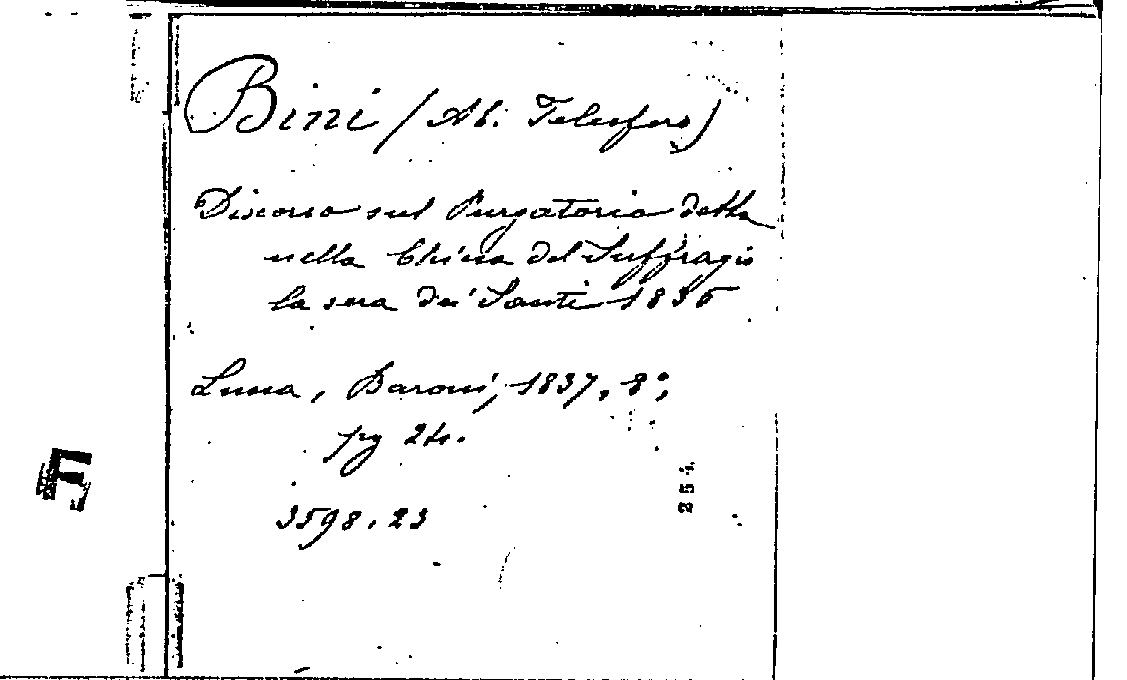 Bini (Ab. Telesforo)
Discorso sul Purgatorio detto
nella Chiesa del Suffragio
la sera de' Santi 1836
Lucca, Baroni, 1837, 8°,
pg 24.
3598.23
254